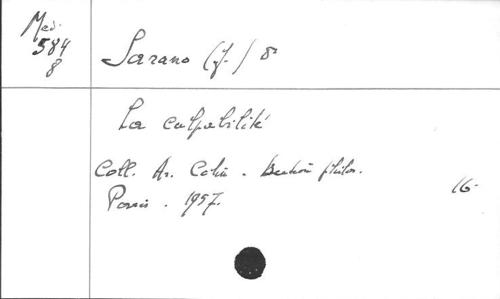 Med.
584
8
Sarano (J.) 8°
La culpabilité
Coll. Ar. Colin. Section philos.
16-
Paris. 1957.